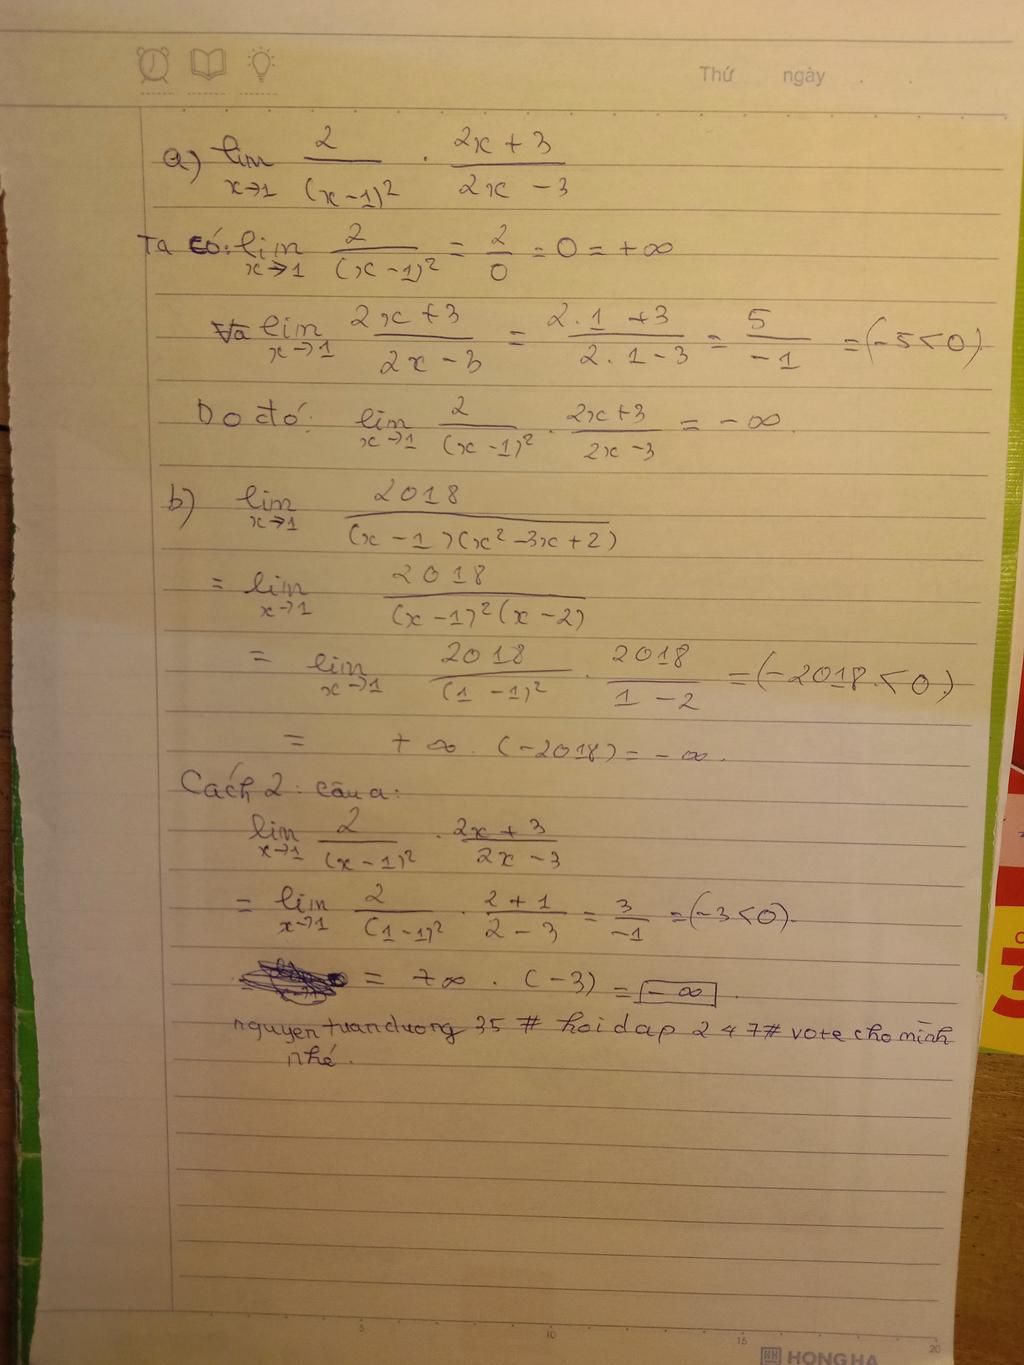 Thứ ngày
a) lim x→1 2/(x-1)² . (2x+3)/(2x-3)
Ta có: lim x→1 2/(x-1)² = 2/0 = 0 = +∞
Va lim x→1 (2x+3)/(2x-3) = (2.1+3)/(2.1-3) = 5/-1 = (-5<0).
Do đó: lim x→1 2/(x-1)² . (2x+3)/(2x-3) = -∞.
b) lim x→1 2018/(x-1)(x²-3x+2)
= lim x→1 2018/(x-1)²(x-2)
= lim x→1 2018/(1-1)² . 2018/1-2 = (-2018<0)
= +∞ . (-2018) = -∞.
Cách 2: câu a:
lim x→1 2/(x-1)² . (2x+3)/(2x-3)
= lim x→1 2/(1-1)² . (2+1)/(2-3) = 3/-1 = (-3<0).
= +∞ . (-3) = -∞.
nguyentuanduong35 # hoidap 247# vote cho mình
nhé.
5 10 15 20
HH HONG HA